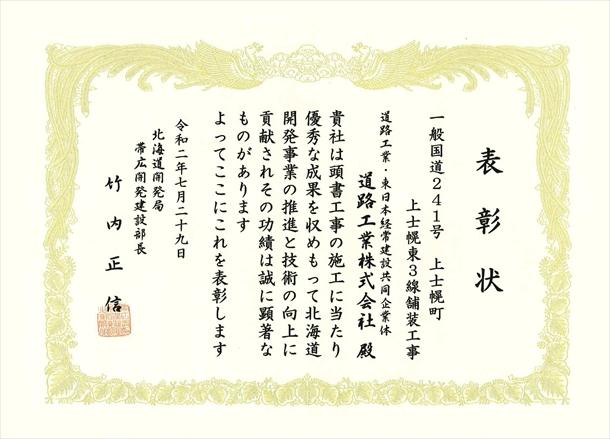 表彰状
一般国道241号　上士幌町
上士幌東3線舗装工事
道路工業・東日本経常建設共同企業体
道路工業株式会社　殿
貴社は頭書工事の施工に当たり
優秀な成果を収めもって北海道
開発事業の推進と技術の向上に
貢献されその功績は誠に顕著な
ものがあります
よってここにこれを表彰します
令和二年七月二十九日
北海道開発局
帯広開発建設部長
竹内正信